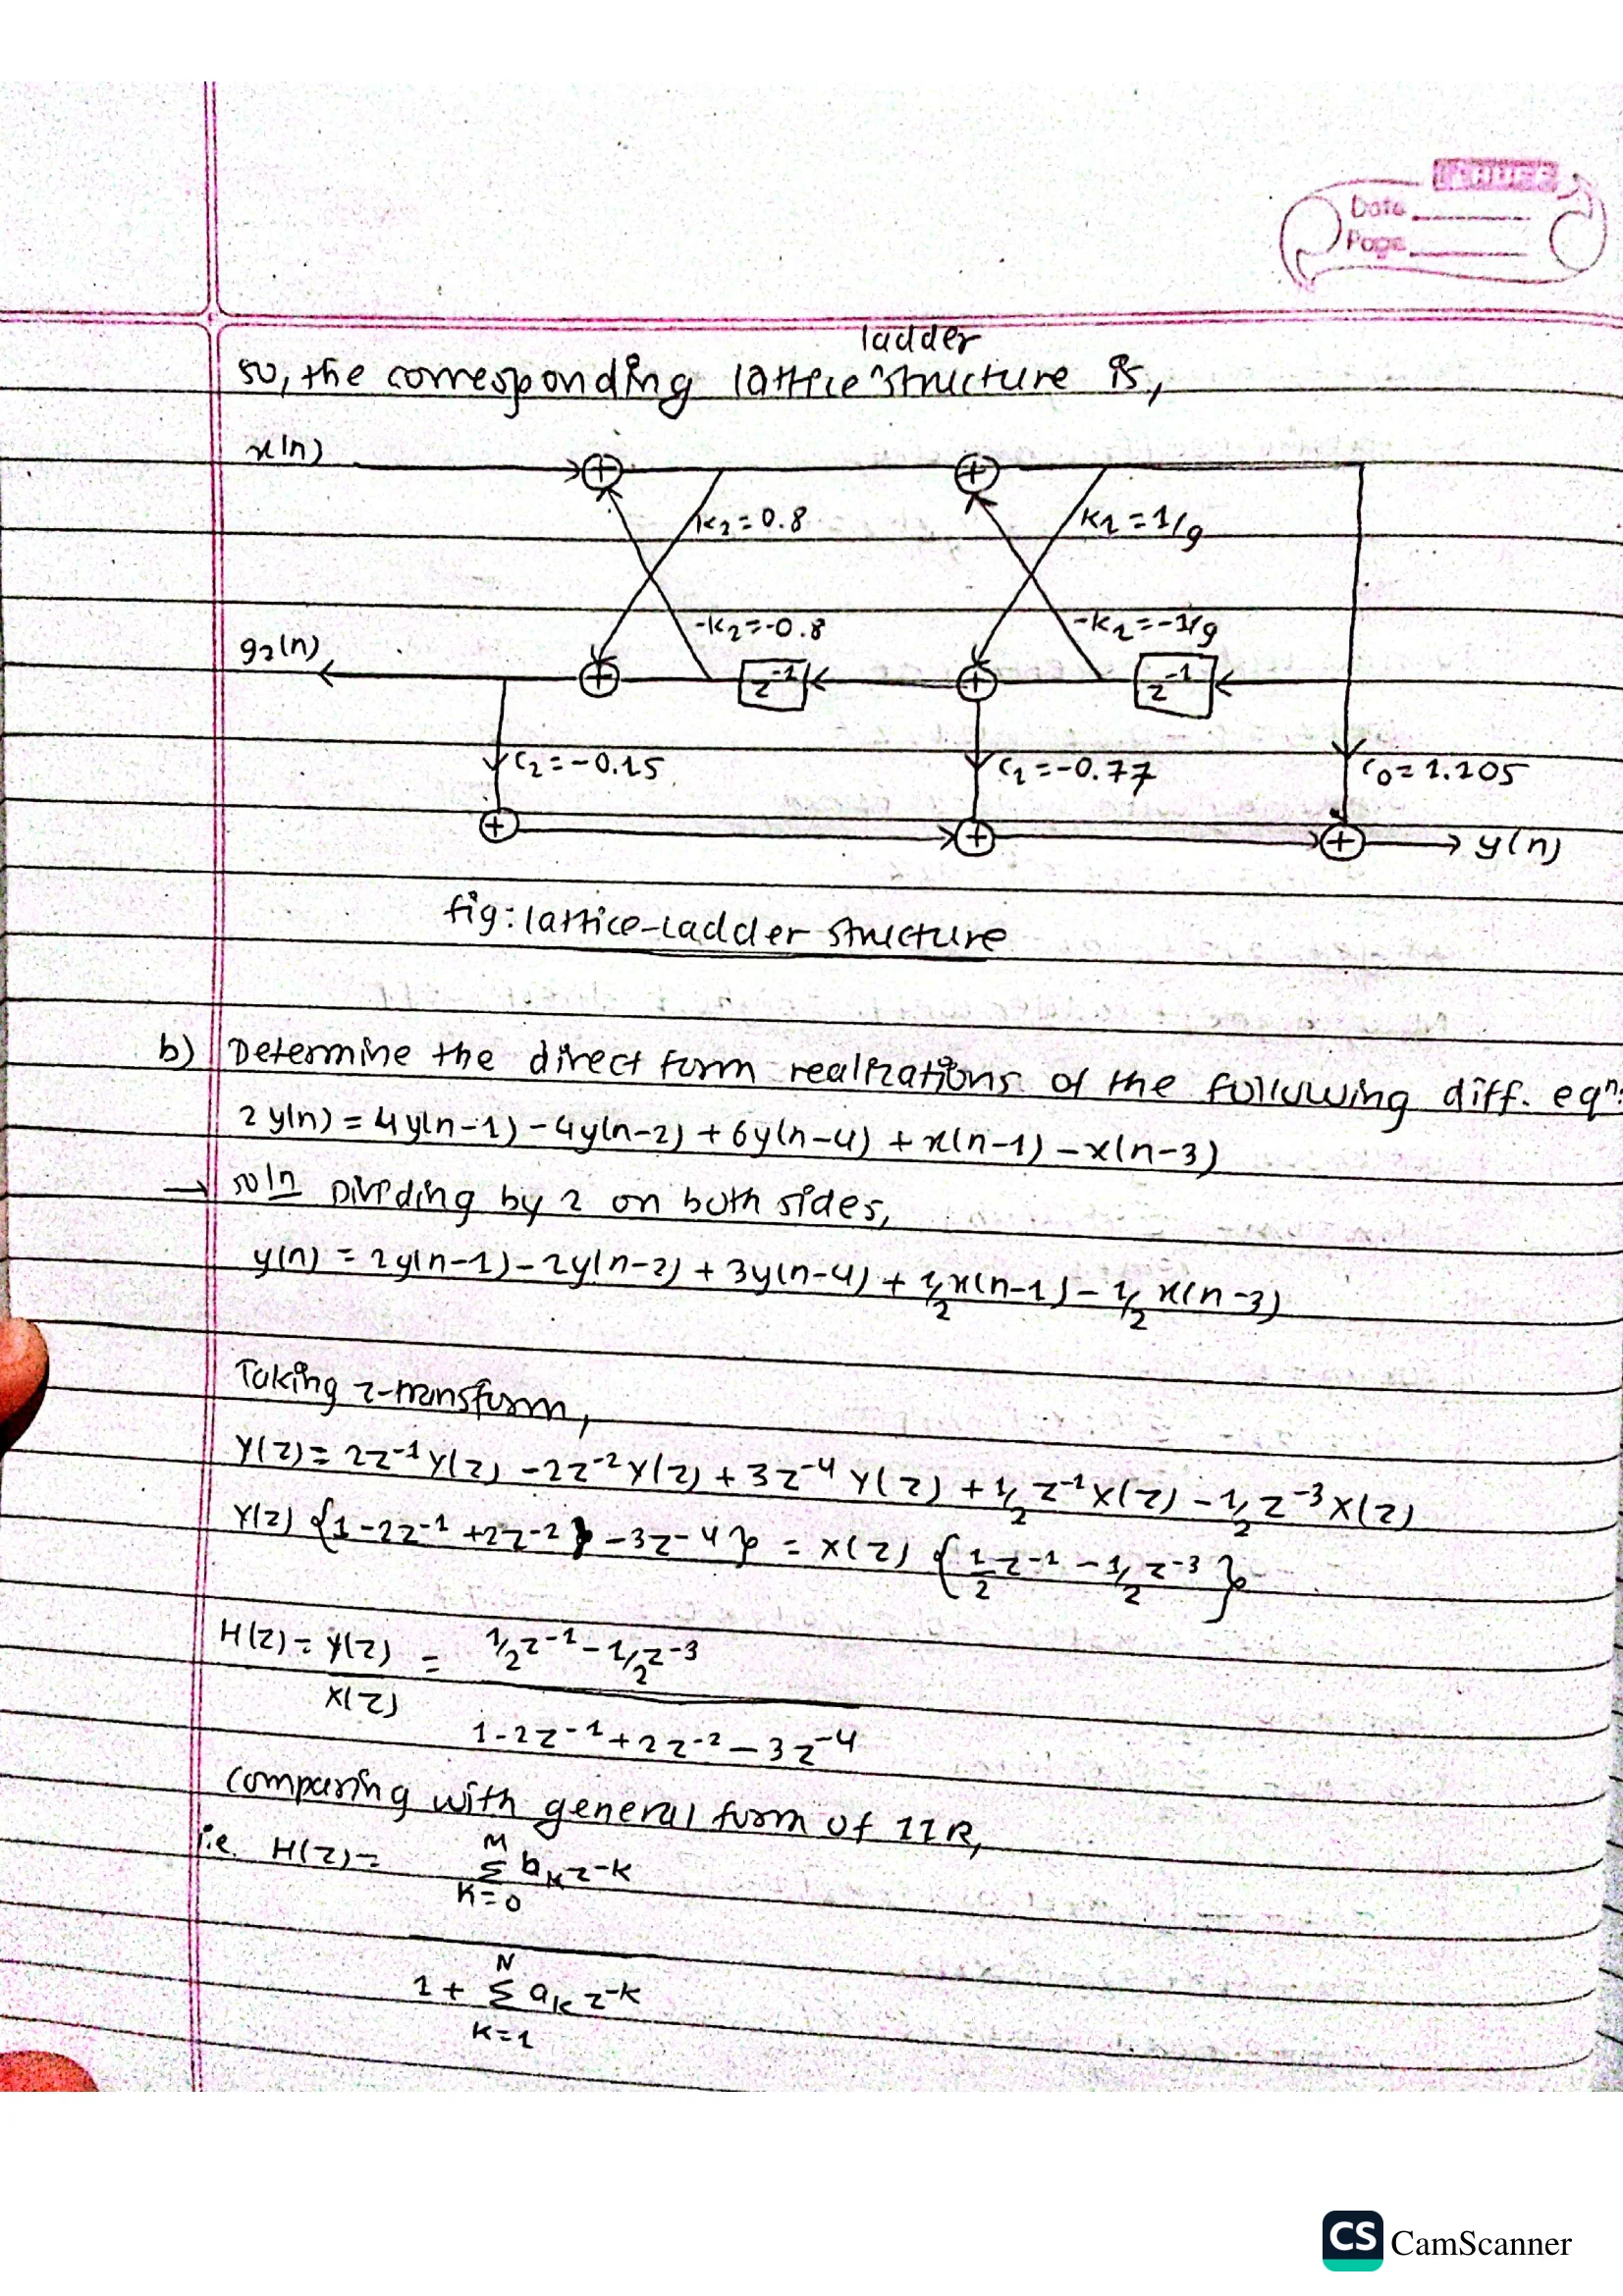 Date
Page
ladder
so, the corresponding lattice ^ structure is,
x(n)
k2=0.8
k1=1/9
-k2=-0.8
-k1=-1/9
g2(n)
z^-1
z^-1
c2=-0.15
c1=-0.77
c0=1.205
y(n)
fig: lattice-Ladder structure
b) Determine the direct form realizations of the following diff. eqn:
2y(n) = 4y(n-1) - 4y(n-2) + 6y(n-4) + x(n-1) - x(n-3)
→ soln Dividing by 2 on both sides,
y(n) = 2y(n-1) - 2y(n-2) + 3y(n-4) + 1/2 x(n-1) - 1/2 x(n-3)
Taking z-transform,
Y(z) = 2z^-1 Y(z) - 2z^-2 Y(z) + 3z^-4 Y(z) + 1/2 z^-1 X(z) - 1/2 z^-3 X(z)
Y(z) {1 - 2z^-1 + 2z^-2 - 3z^-4} = X(z) {1/2 z^-1 - 1/2 z^-3}
H(z) = Y(z)/X(z) = (1/2 z^-1 - 1/2 z^-3)/(1 - 2z^-1 + 2z^-2 - 3z^-4)
comparing with general form of IIR,
i.e. H(z) =
M
Σ bk z^-k
k=0
N
1 + Σ ak z^-k
k=1
CS CamScanner